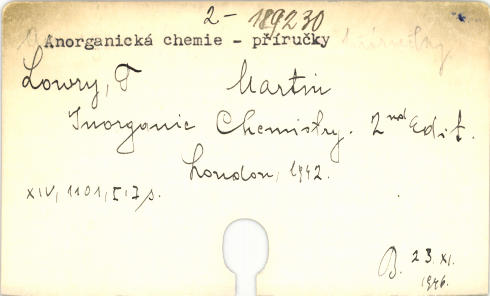 2- 189230
Anorganická chemie - příručky
Lowry, T Martin
Inorganic Chemistry. 2nd Edit.
London, 1942.
XIV, 1101, [i] s.
B. 23. XI.
1946.